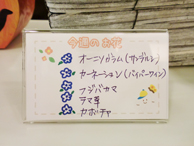 今週のお花
オーニソガラム(サンデルシー)
カーネーション(バイパーワイン)
フジバカマ
ヲマ草
カボチャ